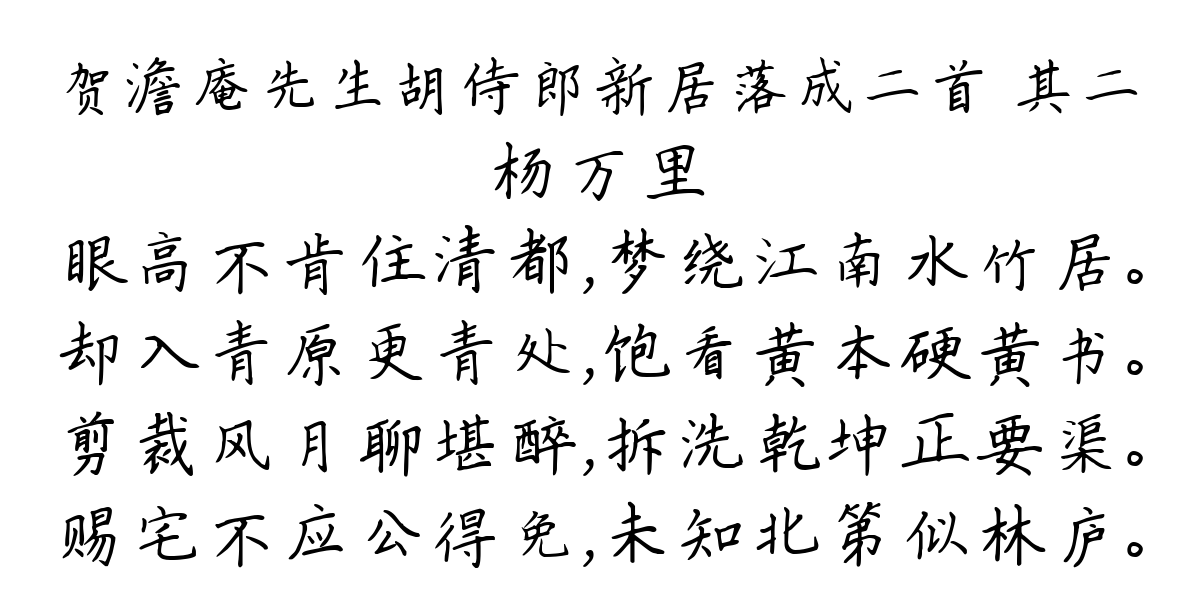 贺澹庵先生胡侍郎新居落成二首 其二
杨万里
眼高不肯住清都,梦绕江南水竹居。
却入青原更青处,饱看黄本硬黄书。
剪裁风月聊堪醉,拆洗乾坤正要渠。
赐宅不应公得免,未知北第似林庐。